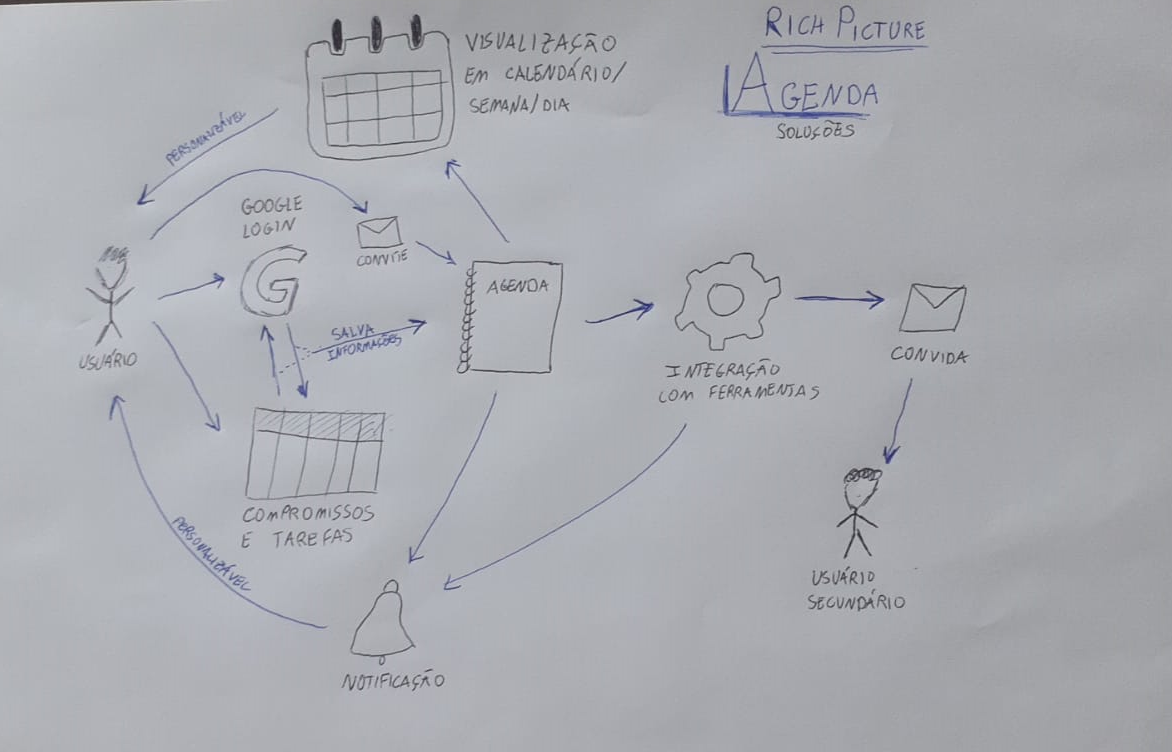 RICH PICTURE
AGENDA
SOLUÇÕES
VISUALIZAÇÃO
EM CALENDÁRIO/
SEMANA/DIA
PERSONALIZÁVEL
GOOGLE
LOGIN
G
CONVITE
USUÁRIO
AGENDA
SALVA
INFORMAÇÕES
INTEGRAÇÃO
COM FERRAMENTAS
CONVIDA
COMPROMISSOS
E TAREFAS
PERSONALIZÁVEL
USUÁRIO
SECUNDÁRIO
NOTIFICAÇÃO